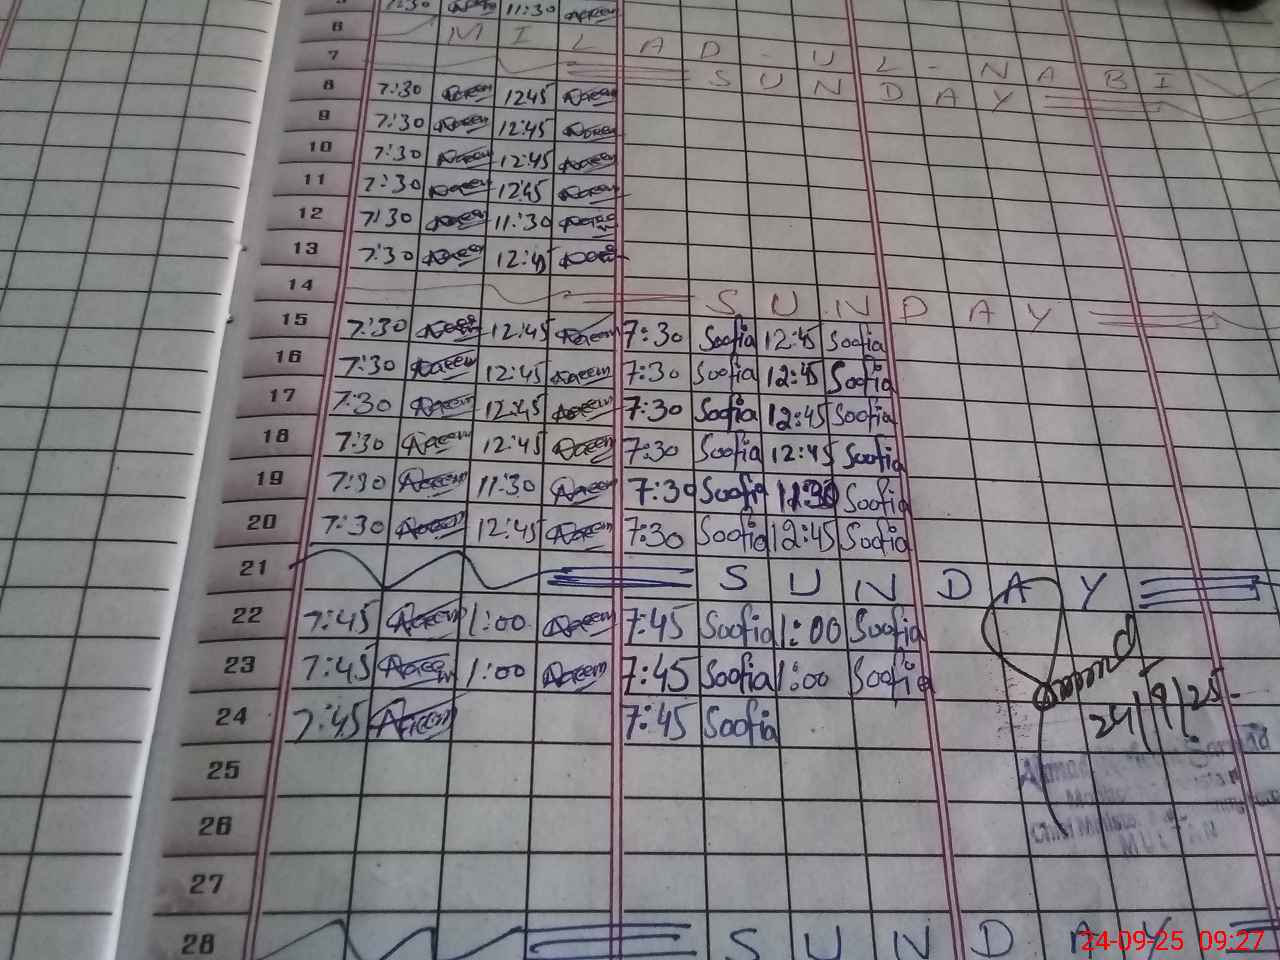 5 7:30 Naeem 11:30 Naeem
6 MILAD-UL-NABI
7 SUNDAY
8 7:30 Naeem 12:45 Naeem
9 7:30 Naeem 12:45 Naeem
10 7:30 Naeem 12:45 Naeem
11 7:30 Naeem 12:45 Naeem
12 7:30 Naeem 11:30 Naeem
13 7:30 Naeem 12:45 Naeem
14 SUNDAY
15 7:30 Naeem 12:45 Naeem 7:30 Soofia 12:45 Soofia
16 7:30 Naeem 12:45 Naeem 7:30 Soofia 12:45 Soofia
17 7:30 Naeem 12:45 Naeem 7:30 Soofia 12:45 Soofia
18 7:30 Naeem 12:45 Naeem 7:30 Soofia 12:45 Soofia
19 7:30 Naeem 11:30 Naeem 7:30 Soofia 11:30 Soofia
20 7:30 Naeem 12:45 Naeem 7:30 Soofia 12:45 Soofia
21 SUNDAY
22 7:45 Naeem 1:00 Naeem 7:45 Soofia 1:00 Soofia
23 7:45 Naeem 1:00 Naeem 7:45 Soofia 1:00 Soofia
24 7:45 Naeem 7:45 Soofia
24/9/25
Ahmad
25
Chief
26
MULTAN
27
28 SUNDAY
24-09-25 09:27